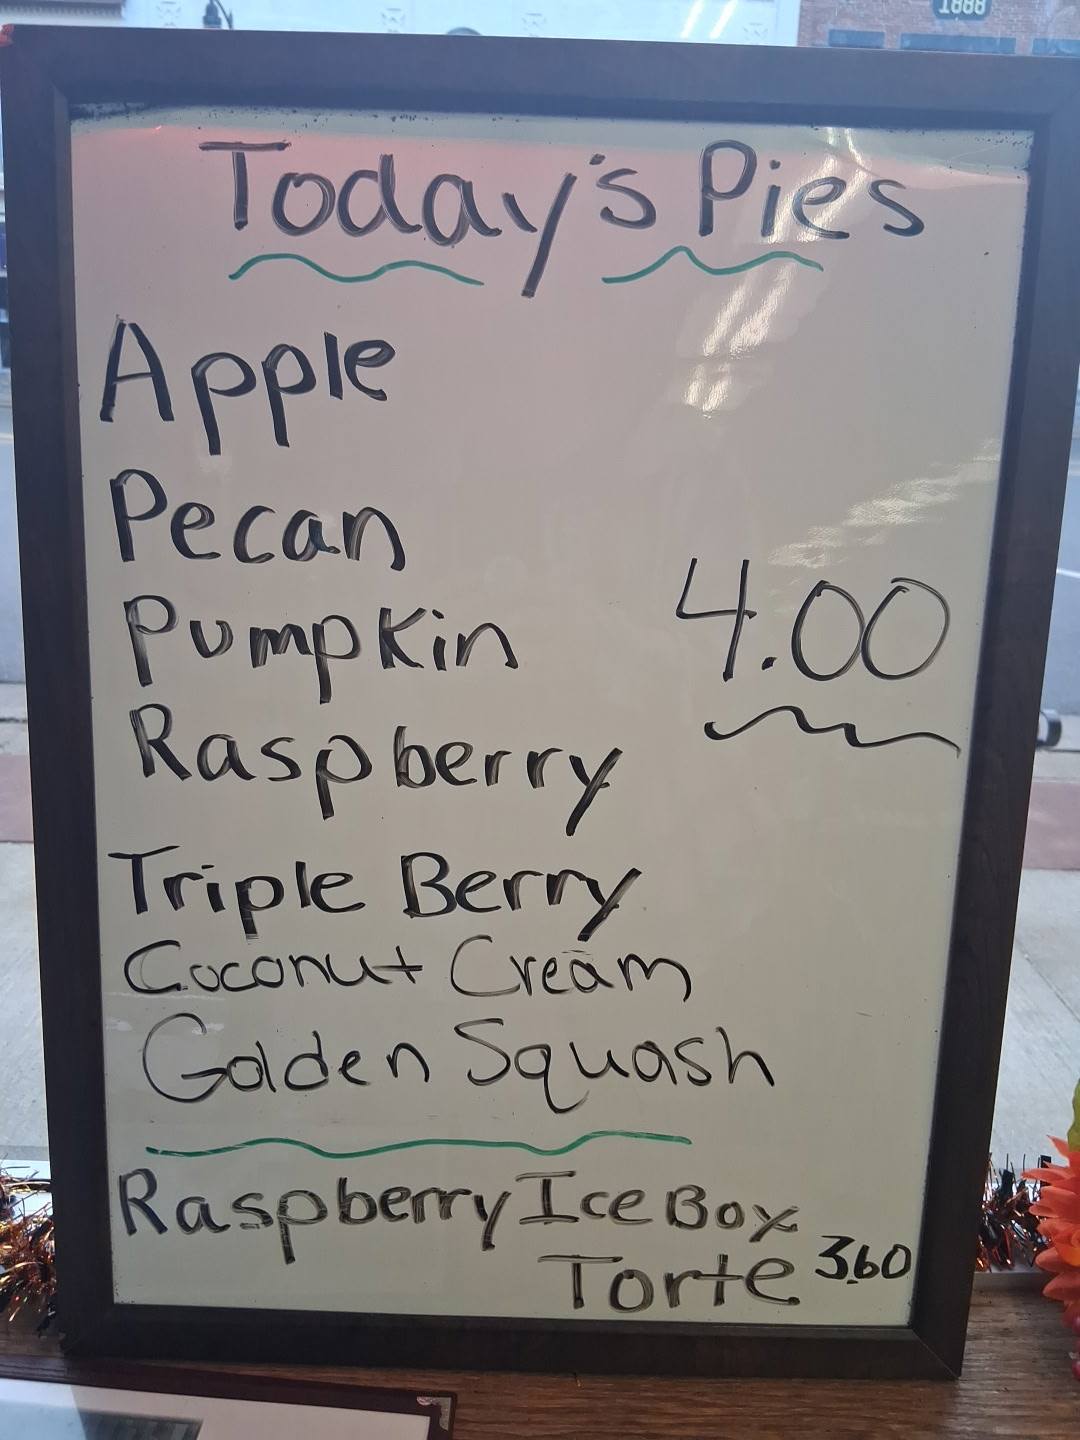 1888
Today's Pies
Apple
Pecan
Pumpkin
4.00
Raspberry
Triple Berry
Coconut Cream
Golden Squash
Raspberry Ice Box
Torte 3.60